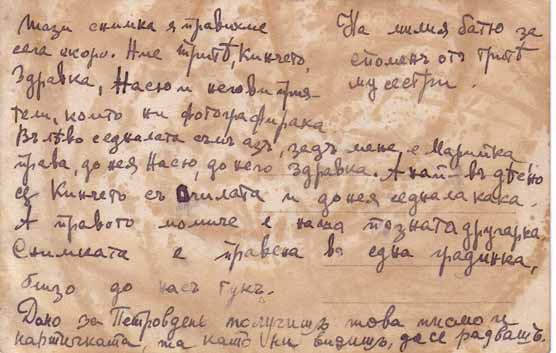 Тази снимка я правихме
сега скоро. Ние тритѣ, Кинчето,
Здравка, Насю и негови прия-
тели, които ни фотографираха
На милия батю за
споменъ отъ тритѣ
му сестри.
Въ лѣво седналата съмъ азъ, задъ мене е Марийка
права, до нея Насю, до него Здравка. А най-въ дѣсно
е Кинчето съ очилата и до нея седнала кака.
А правото момиче е наша позната другарка
Снимката е правена въ една градинка,
близо до насъ тукъ.
Дано за Петровдень получишъ това писмо и
картичката, та като ни видишъ, да се радвашъ.